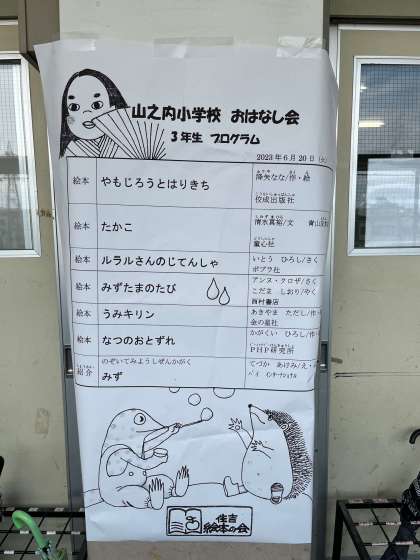 山之内小学校 おはなし会
3年生 プログラム
2023年6月20日(火)
絵本 やもじろうとはりきち 降矢なな/作・絵
佼成出版社
絵本 たかこ 清水真裕/文 青山友美
童心社
絵本 ルラルさんのじてんしゃ いとう ひろし/さく
ポプラ社
絵本 みずたまのたび アンヌ・クロザ/さく
こだま しおり/やく
西村書店
絵本 うみキリン あきやま ただし/作・
金の星社
絵本 なつのおとずれ かがくい ひろし/作・
PHP研究所
紹介 のぞいてみようしぜんかがく
みず てづか あけみ/え・
パイ インターナショナル
住吉
絵本の会